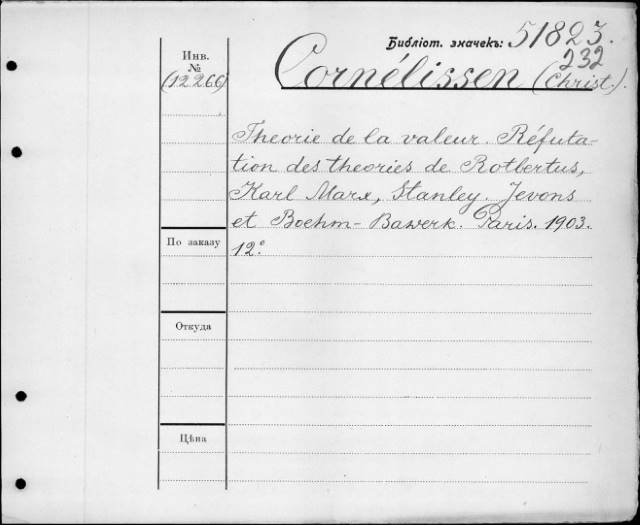 Библіот. значекъ: 51823.
232
Инв.
№
(12266)
Cornélissen (Christ.).
Theorie de la valeur. Réfuta-
tion des theories de Rotbertus,
Karl Marx, Stanley. Jevons
et Boehm-Bawerk. Paris. 1903.
12º
По заказу
Откуда
Цѣна